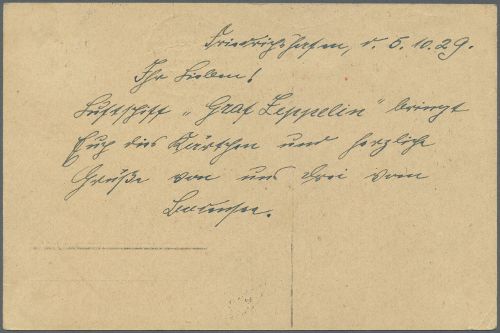 Friedrichshafen, d. 5.10.29.
Ihr Lieben!
Luftschiff „Graf Zeppelin" bringt
Euch dies Kärtchen und herzliche
Grüße von uns drei vom
Bodensee.